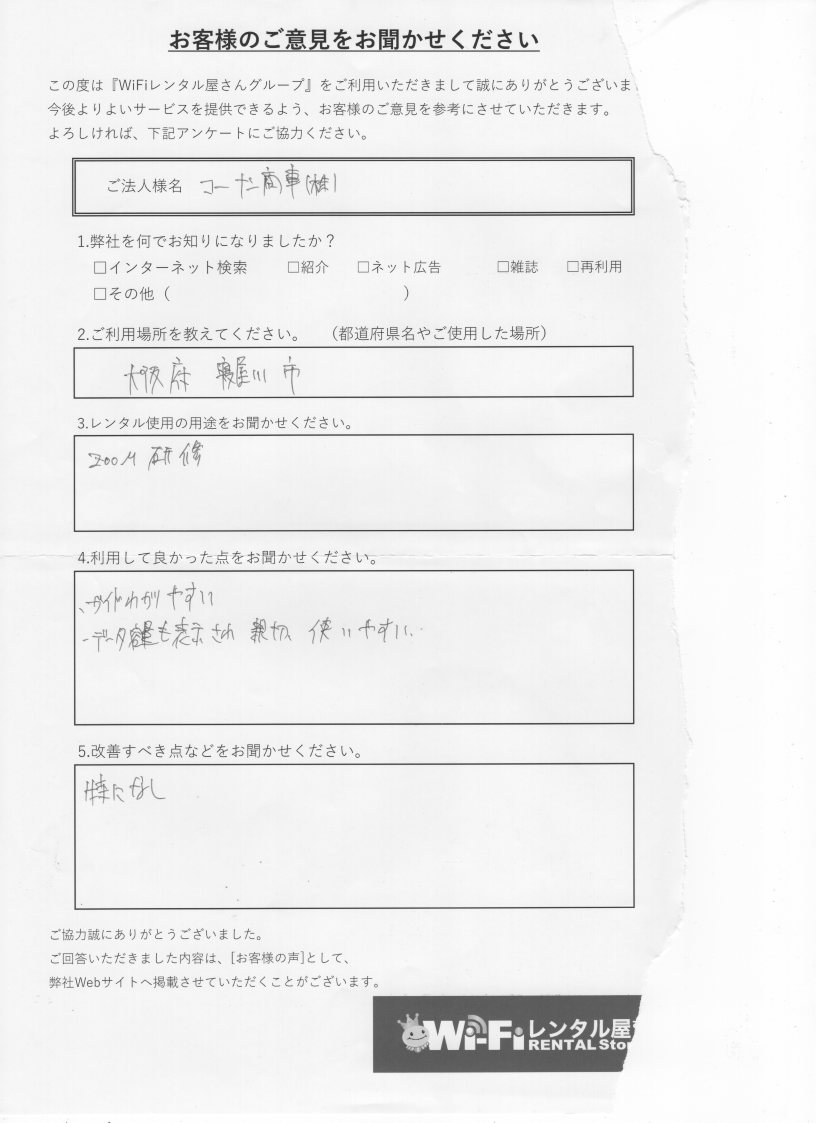 お客様のご意見をお聞かせください
この度は『WiFiレンタル屋さんグループ』をご利用いただきまして誠にありがとうございま
今後よりよいサービスを提供できるよう、お客様のご意見を参考にさせていただきます。
よろしければ、下記アンケートにご協力ください。
ご法人様名 コーナン商事(株)
1.弊社を何でお知りになりましたか？
□インターネット検索 □紹介 □ネット広告 □雑誌 □再利用
□その他（ ）
2.ご利用場所を教えてください。 （都道府県名やご使用した場所）
大阪府 寝屋川市
3.レンタル使用の用途をお聞かせください。
ZOOM 研修
4.利用して良かった点をお聞かせください。
・ガイドわかりやすい
・データ容量も表示され 親切、使いやすい。
5.改善すべき点などをお聞かせください。
特になし
ご協力誠にありがとうございました。
ご回答いただきました内容は、[お客様の声]として、
弊社Webサイトへ掲載させていただくことがございます。
Wi-Fi レンタル屋
RENTAL Sto